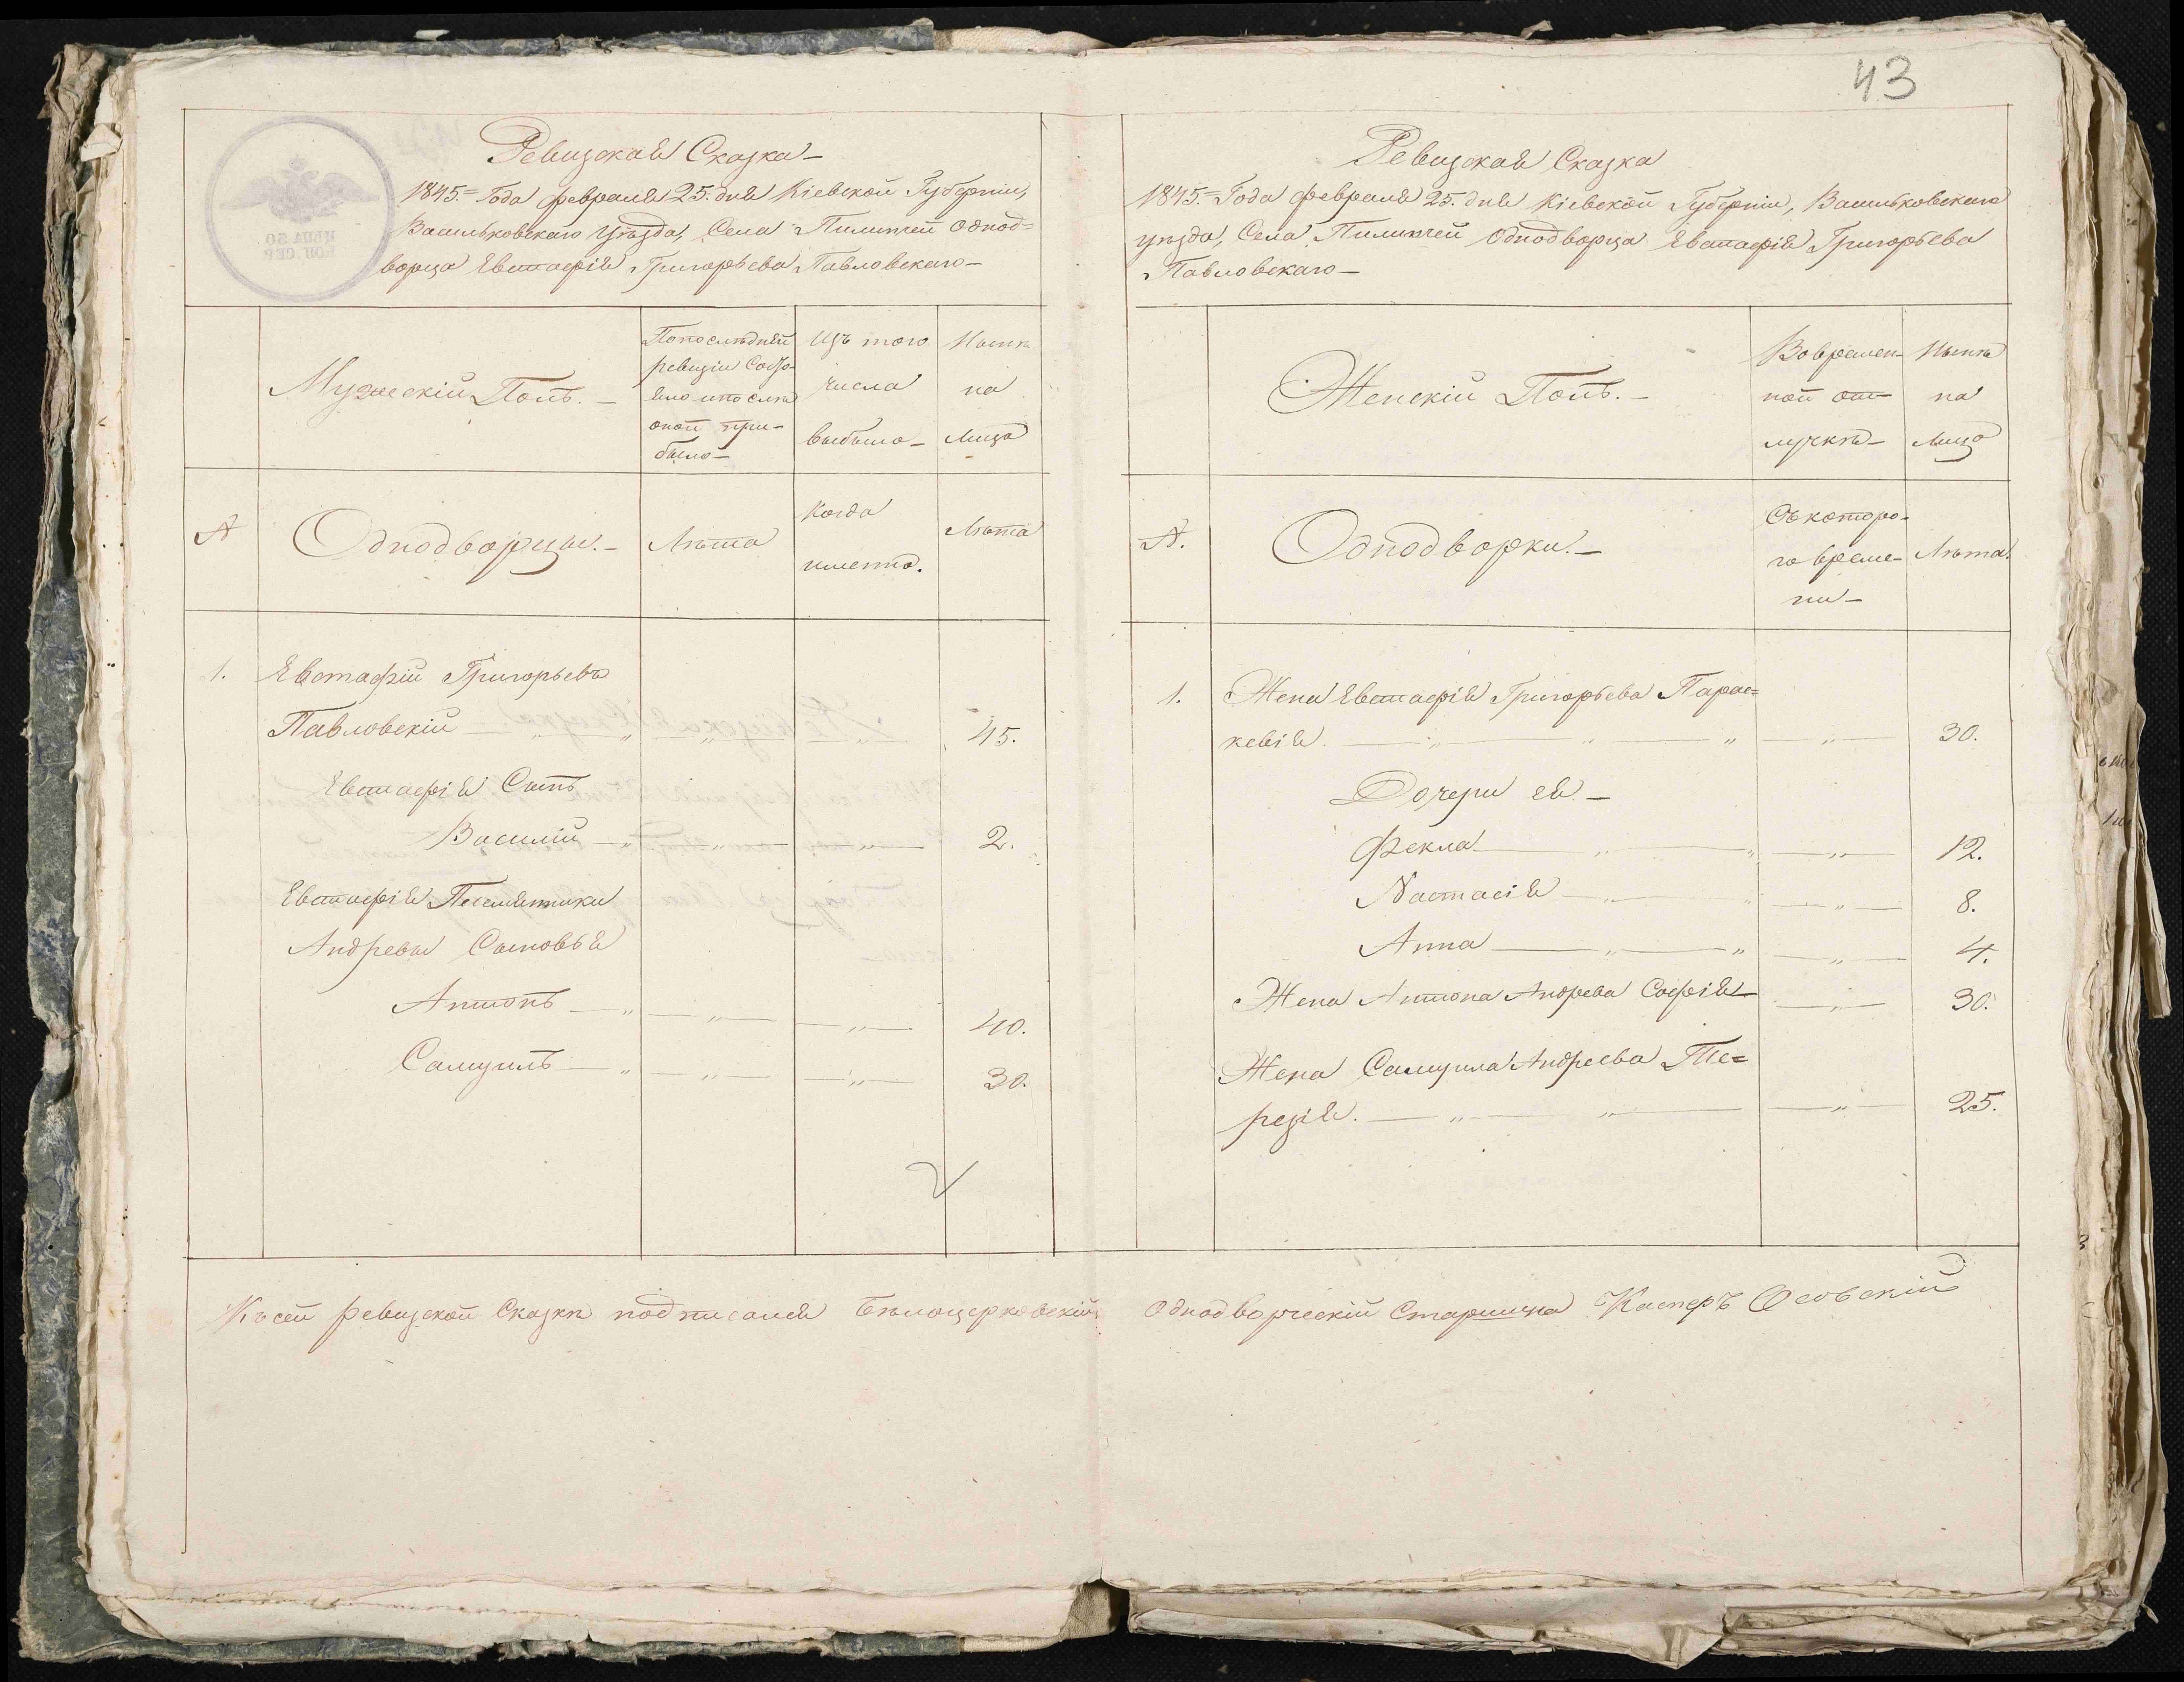 43
Ревизская Сказка
1845. Года февраля 25. дня Кіевской Губерніи,
Васильковскаго Уѣзда, Села Пилипчей Однод=
ворца Евстафія Григорьева Павловскаго
ЦѢНА 30
КОП. СЕР.
Мужескій Полъ.
Попослѣдней
ревизіи Состо-
яло ипослѣ
оной при-
было
Изъ того
числа
выбыло
Нынѣ
на
Лицо
№
Однодворцы.
Лѣта
Когда
именно.
Лѣта
1. Евстафій Григорьевъ
Павловскій 45.
Евстафія Сынъ
Василій 2.
Евстафія Племянники
Андреевы Сыновья
Антонъ 40.
Самуилъ 30.
Ревизская Сказка
1845. Года февраля 25. дня Кіевской Губерніи, Васильковскаго
уѣзда, Села Пилипчей Однодворца Евстафія Григорьева
Павловскаго
Женскій Полъ.
Вовремен-
ной от-
лучкѣ
Нынѣ
на
Лицо
№.
Однодворки.
Съ которо-
го време-
ни
Лѣта.
1. Жена Евстафія Григорьева Парас=
кевія. 30.
Дочери ея
Фекла 12.
Настасія 8.
Анна 4.
Жена Антона Андреева Софія 30.
Жена Самуила Андреева Те=
резія. 25.
Къ сей ревизской Сказкѣ подписался Бѣлоцерковскій Однодворческій Старшина Касперъ Осовскій